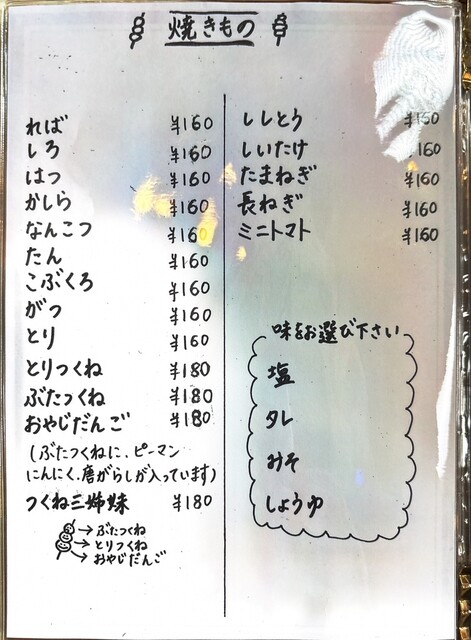 焼きもの
れば ¥160
しろ ¥160
はつ ¥160
かしら ¥160
なんこつ ¥160
たん ¥160
こぶくろ ¥160
がつ ¥160
とり ¥160
とりつくね ¥180
ぶたつくね ¥180
おやじだんご ¥180
(ぶたつくねに、ピーマン
にんにく、唐がらしが入っています)
つくね三姉妹 ¥180
→ぶたつくね
→とりつくね
→おやじだんご
ししとう ¥160
しいたけ 160
たまねぎ ¥160
長ねぎ ¥160
ミニトマト ¥160
味をお選び下さい
塩
タレ
みそ
しょうゆ